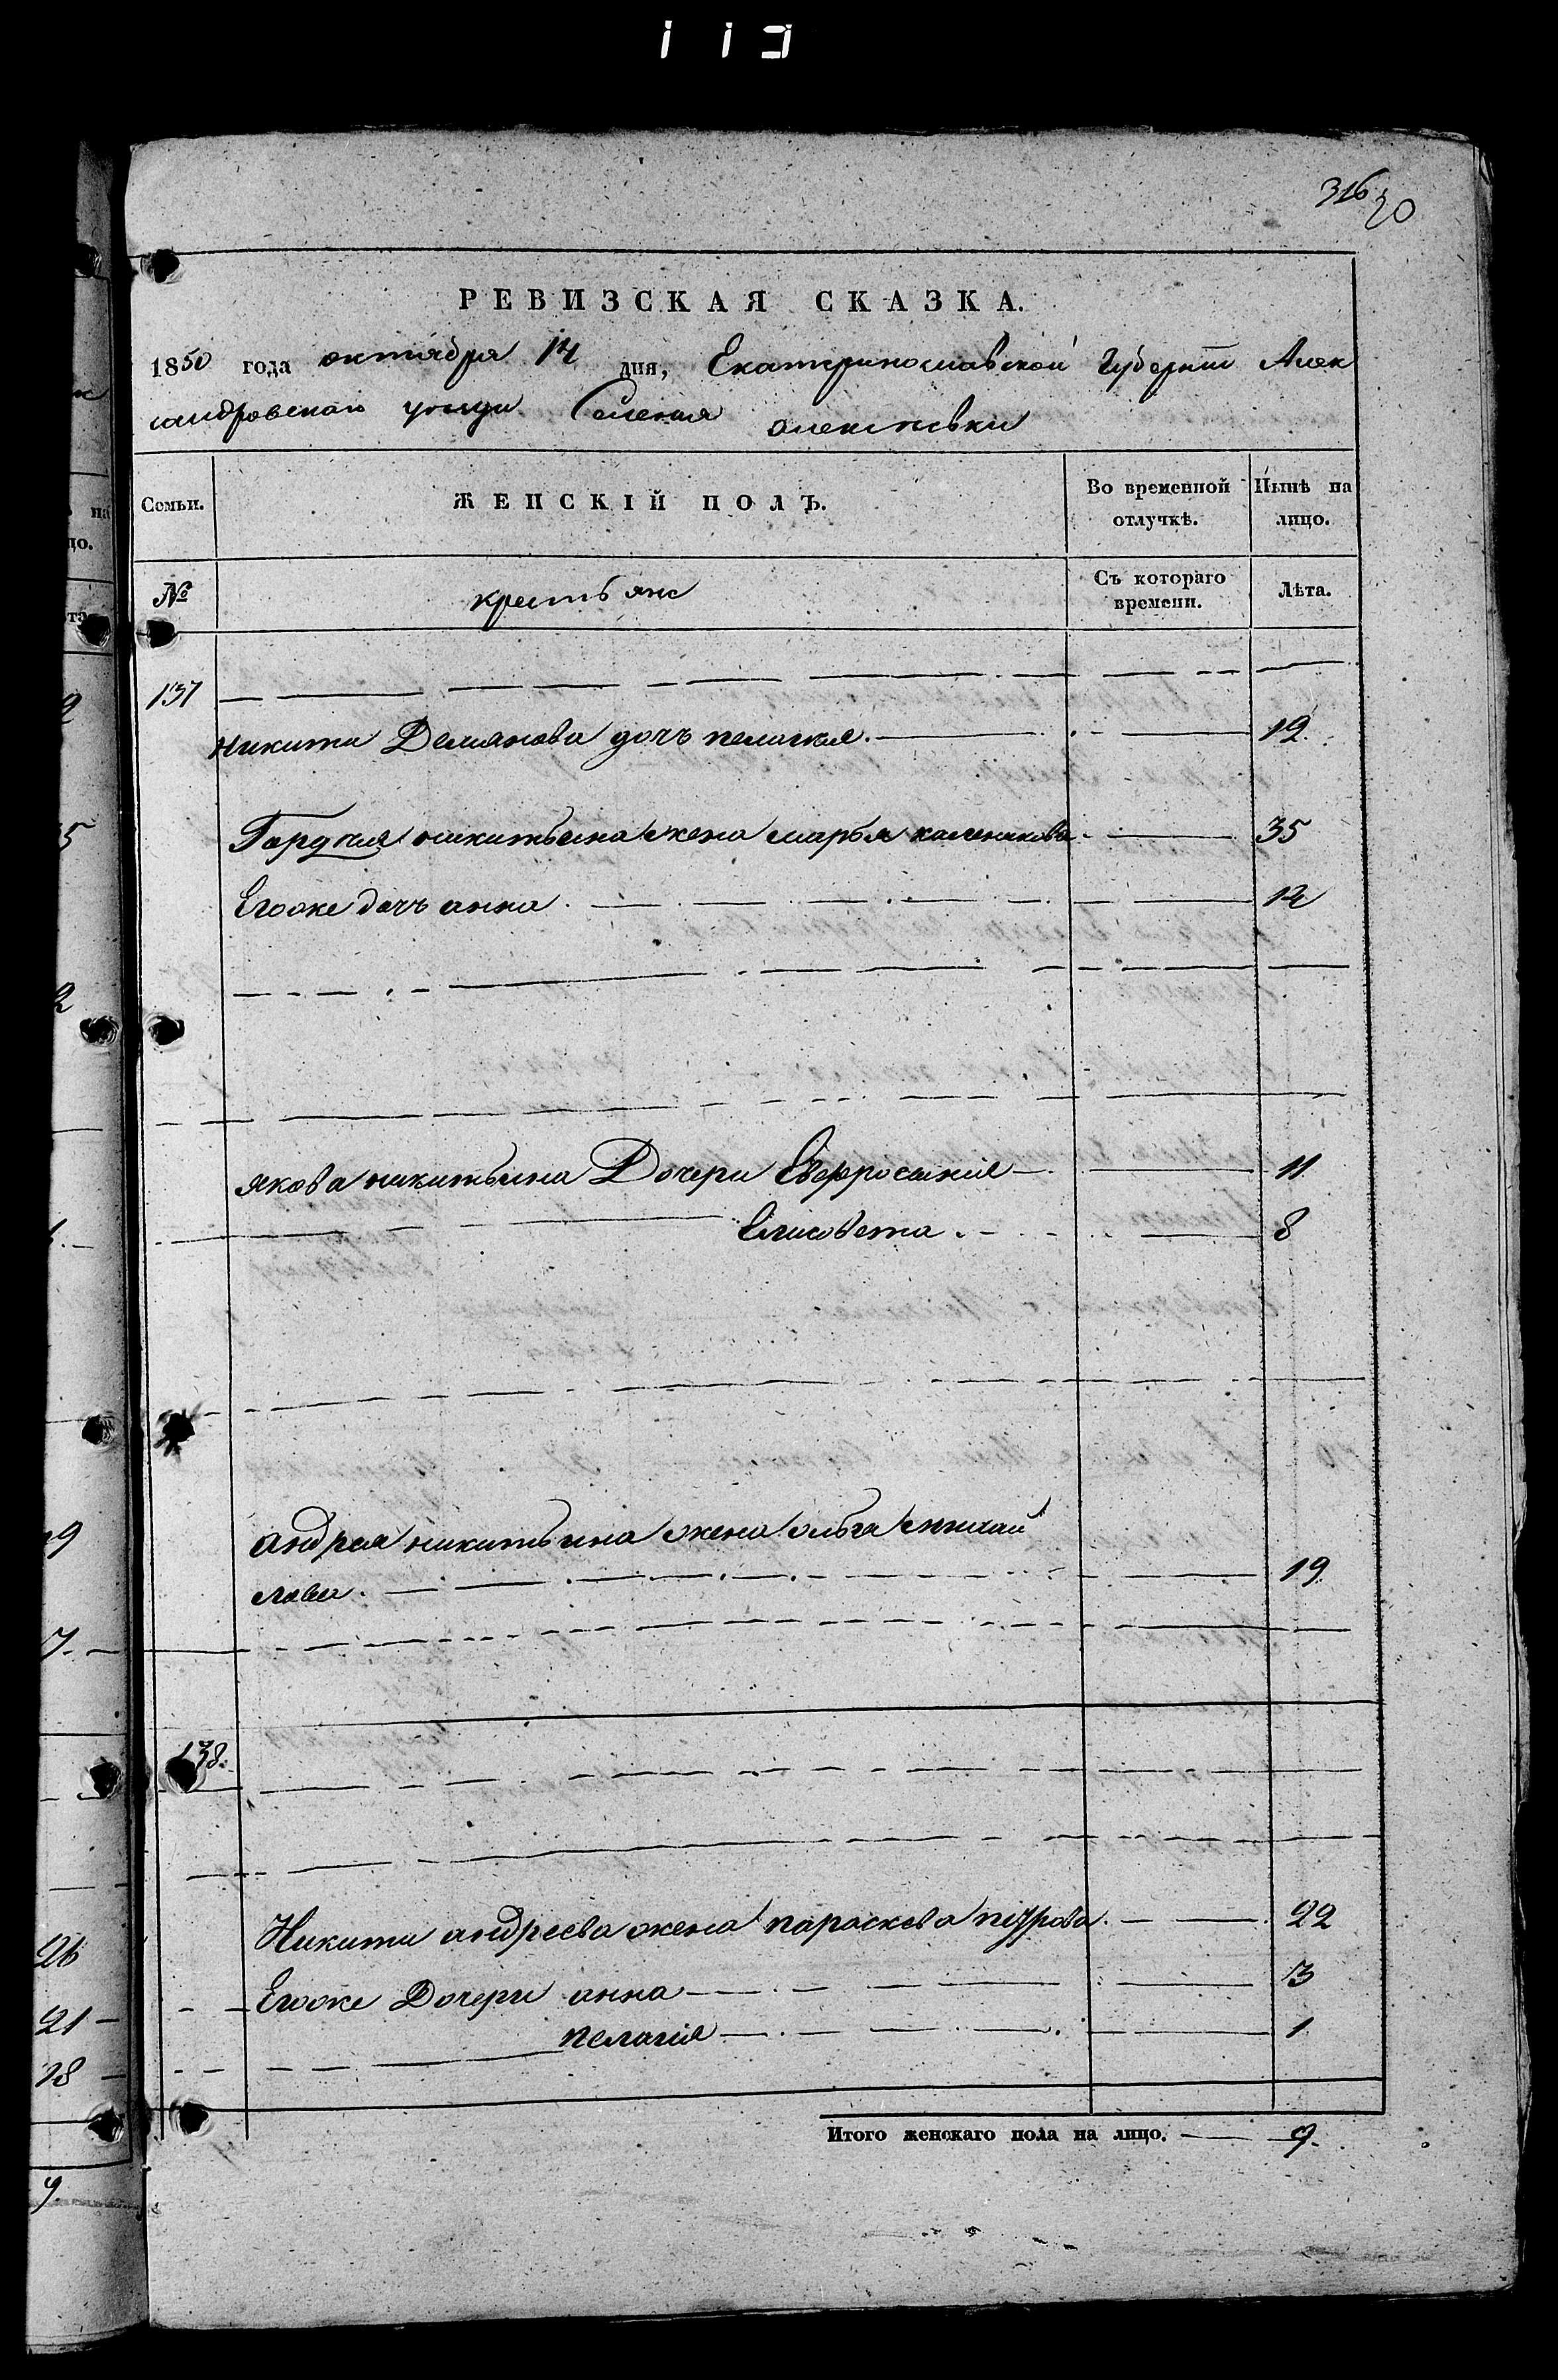 316
30
РЕВИЗСКАЯ СКАЗКА.
1850 года октября 14 дня, Екатеринославской Губерніи Алек
сандровскаго уезда Селения
Семьи. ЖЕНСКІЙ ПОЛЪ. Во временной отлучкѣ. Нынѣ на лицо.
№ крестьяне Съ котораго времени. Лѣта.
137
Никиты Демянова дочь пелагия. 12
Гордия никитьина жена марья каленикова 35
Егоже дочь анна. 12
якова никитьина Дочери Евфросиния 11
Елисовета. 8
андрея никитьина жена ольга михай
лова. 19
138.
Никиты андреева жена параскева петрова. 22
Егоже Дочери анна 3
пелагия 1
Итого женскаго пола на лицо. 9.